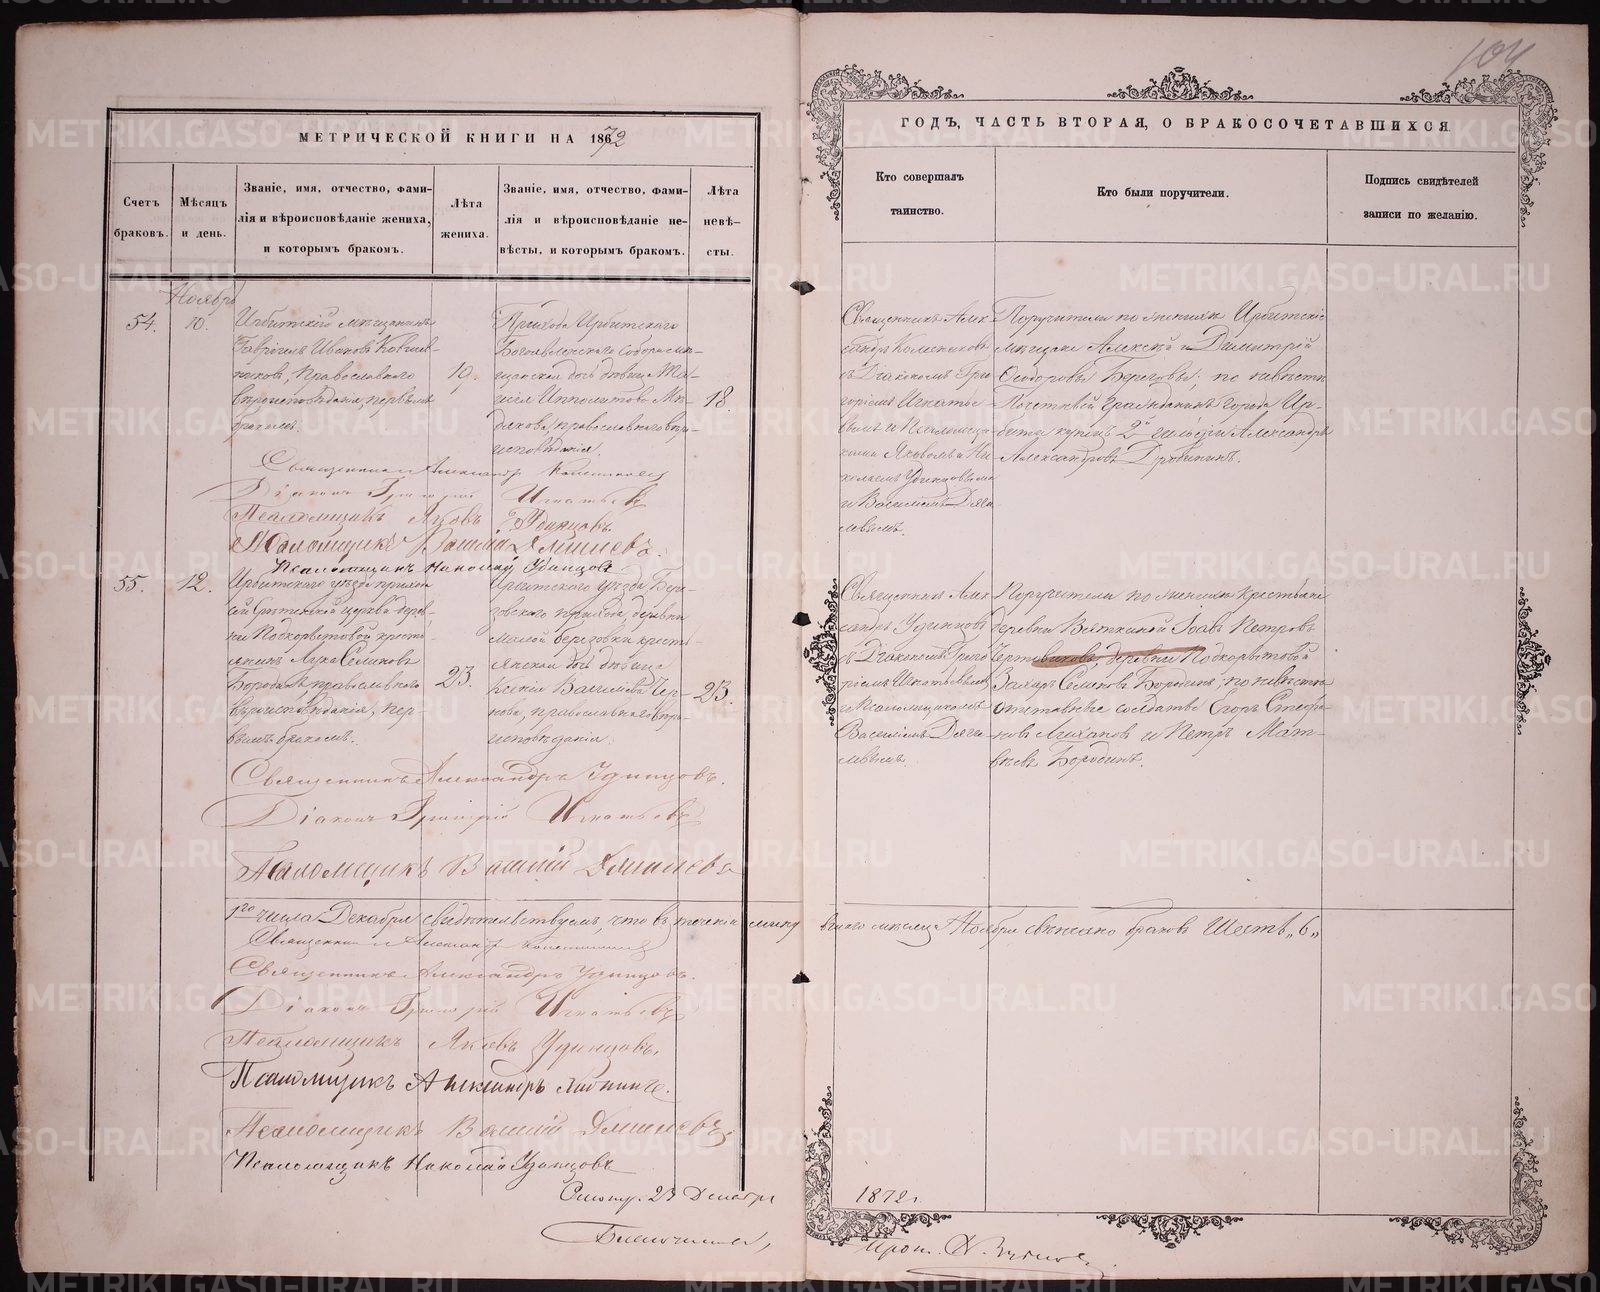 104
МЕТРИЧЕСКОЙ КНИГИ НА 1872
ГОДЪ, ЧАСТЬ ВТОРАЯ, О БРАКОСОЧЕТАВШИХСЯ
Счетъ
браковъ.
Мѣсяцъ
и день.
Званіе, имя, отчество, фами-
лія и вѣроисповѣданіе жениха,
и которымъ бракомъ.
Лѣта
жениха.
Званіе, имя, отчество, фами-
лія и вѣроисповѣданіе не-
вѣсты, и которымъ бракомъ.
Лѣта
невѣ-
сты.
Кто совершалъ
таинство.
Кто были поручители.
Подпись свидѣтелей
записи по желанію.
Ноябрь
54.
10.
Ирбитскій мѣщанинъ
Гавріилъ Ивановъ
православнаго
вѣроисповѣданія, первымъ
бракомъ.
19.
Прихода Ирбитскаго
Богоявленскаго собора мѣ-
щанская дочь дѣвица
Ипполитова
православнаго вѣро-
исповѣданія.
18.
Священникъ Алек-
сандръ
съ Діакономъ Гри-
горіемъ Игнатье-
вымъ и Псаломщи-
ками Яковомъ и Ни-
колаемъ Удинцовыми
и Василіемъ
Поручители по женихѣ Ирбитскіе
мѣщане Алексѣй и Димитрій
Ѳеодоровы; по невѣстѣ
Почетный гражданинъ города Ир-
бита купецъ 2й гильдіи Александръ
Александровъ
Священникъ Александръ
Діаконъ Григорій Игнатьевъ
Псаломщикъ Яковъ Удинцовъ
Псаломщикъ Василій
Псаломщикъ Николай Удинцовъ
55.
12.
Ирбитскаго уѣзда прихода
Срѣтенской церкви дерев-
ни Подкорытовой кресть-
янинъ Лука Семеновъ
Бородинъ, православнаго
вѣроисповѣданія, пер-
вымъ бракомъ.
23.
Ирбитскаго уѣзда Бере-
зовскаго прихода, деревни
Малой Березовки кресть-
янская дочь дѣвица
Ксенія Васильева
православнаго вѣро-
исповѣданія.
23.
Священникъ Алек-
сандръ Удинцовъ
съ Діакономъ Григо-
ріемъ Игнатьевымъ
и Псаломщикомъ
Василіемъ
Поручители по женихѣ крестьяне
деревни Вяткиной Петровъ
деревни Подкорытовой
Захаръ Семеновъ Бородинъ; по невѣстѣ
отставные солдаты Егоръ Стефа-
новъ и Петръ Мат-
вѣевъ Бородинъ.
Священникъ Александръ Удинцовъ.
Діаконъ Григорій Игнатьевъ
Псаломщикъ Василій
1го числа Декабря свидѣтельствуемъ, что въ теченіи мину-
вшаго мѣсяца Ноября вѣнчано браковъ Шесть „6„
Священникъ Александръ
Священникъ Александръ Удинцовъ.
Діаконъ Григорій Игнатьевъ
Псаломщикъ Яковъ Удинцовъ.
Псаломщикъ Александръ
Псаломщикъ Василій
Псаломщикъ Николай Удинцовъ
23 Декабря
1872 г.
Благочинный,
Прот.
METRIKI.GASO-URAL.RU